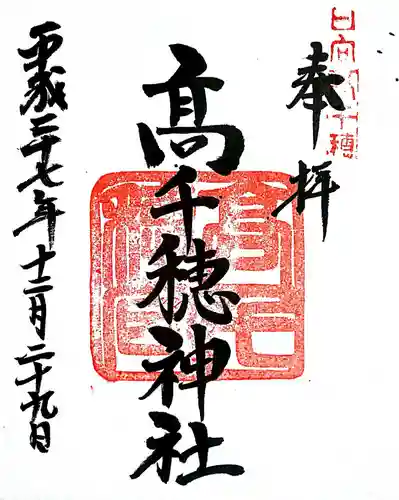 日向高千穂
奉拝
髙千穂神社
平成二十七年十二月二十九日